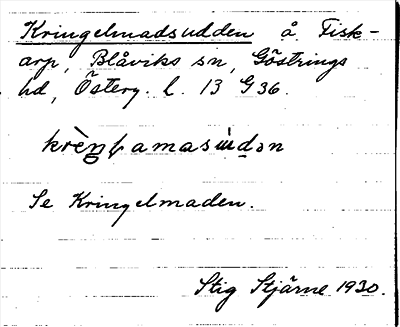 Kringelmadsudden å Fisk-
arp, Blåviks sn, Göstrings
hd, Österg. l. 13 G 36.
Se Kringelmaden.
Stig Stjärne 1930.